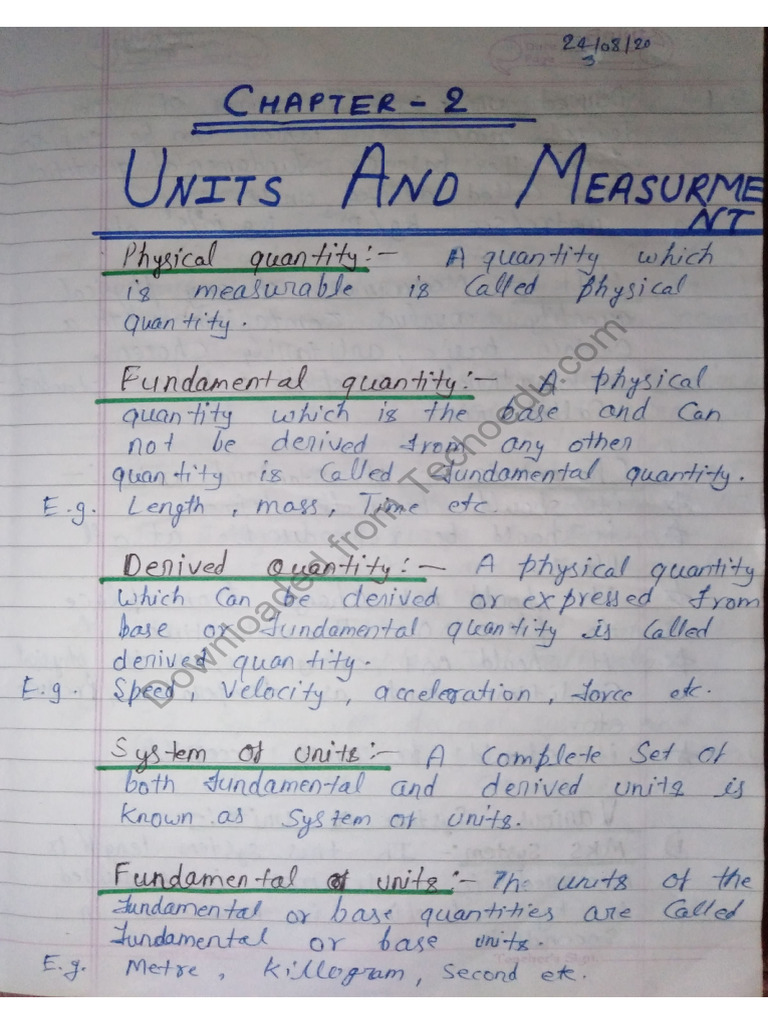 24/08/20
3
CHAPTER - 2
UNITS AND MEASURME
NT
Physical quantity:- A quantity which
is measurable is called physical
quantity.
Fundamental quantity:- A physical
quantity which is the base and can
not be derived from any other
quantity is called fundamental quantity.
E.g. Length, mass, Time etc.
Derived Quantity:- A physical quantity
which can be derived or expressed from
base or fundamental quantity is called
derived quantity.
E.g. Speed, velocity, acceleration, force etc.
System of units:- A complete set of
both fundamental and derived units is
known as system of units.
Fundamental of units:- The units of the
fundamental or base quantities are called
fundamental or base units.
E.g. Metre, killogram, second etc.
Downloaded from Techoedu.com